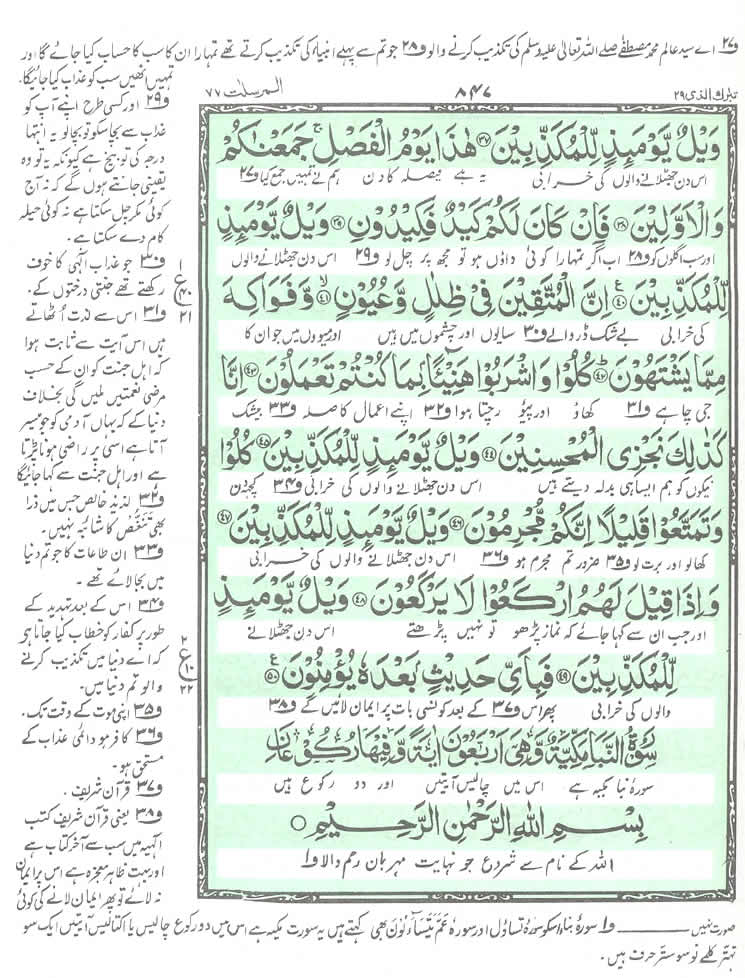 و۲۷ اے سید عالم محمد مصطفےٰ صلے اللہ تعالیٰ علیہ وسلم کی تکذیب کرنے والو و۲۸ جو تم سے پہلے انبیاء کی تکذیب کرتے تھے تمہارا ان کا سب کا حساب کیا جائے گا اور
تمہیں انھیں سب کو عذاب کیا جائیگا۔
تبٰرک الذی ۲۹
۸۴۷
المرسلٰت ۷۷
وَيْلٌ يَّوْمَئِذٍ لِّلْمُكَذِّبِيْنَ ۳۷ هٰذَا يَوْمُ الْفَصْلِ ۚ جَمَعْنٰكُمْ
اس دن جھٹلانے والوں کی خرابی یہ ہے فیصلہ کا دن ہم نے تمہیں جمع کیا و۲۷
وَالْاَوَّلِيْنَ ۳۸ فَاِنْ كَانَ لَكُمْ كَيْدٌ فَكِيْدُوْنِ ۳۹ وَيْلٌ يَّوْمَئِذٍ
اور سب اگلوں کو و۲۸ اب اگر تمہارا کوئی داؤں ہو تو مجھ پر چل لو و۲۹ اس دن جھٹلانے والوں
لِّلْمُكَذِّبِيْنَ ۴۰ اِنَّ الْمُتَّقِيْنَ فِيْ ظِلٰلٍ وَّعُيُوْنٍ ۴۱ وَّفَوَاكِهَ
کی خرابی بے شک ڈر والے و۳۰ سایوں اور چشموں میں ہیں اور میووں میں جو ان کا
مِمَّا يَشْتَهُوْنَ ۴۲ كُلُوْا وَاشْرَبُوْا هَنِيْٓئًا بِمَا كُنْتُمْ تَعْمَلُوْنَ ۴۳ اِنَّا
جی چاہے و۳۱ کھاؤ اور پیؤ رچتا ہوا و۳۲ اپنے اعمال کا صلہ و۳۳ بیشک
كَذٰلِكَ نَجْزِي الْمُحْسِنِيْنَ ۴۴ وَيْلٌ يَّوْمَئِذٍ لِّلْمُكَذِّبِيْنَ ۴۵ كُلُوْا
نیکوں کو ہم ایسا ہی بدلہ دیتے ہیں اس دن جھٹلانے والوں کی خرابی و۳۴ کچھ دن
وَتَمَتَّعُوْا قَلِيْلًا اِنَّكُمْ مُّجْرِمُوْنَ ۴۶ وَيْلٌ يَّوْمَئِذٍ لِّلْمُكَذِّبِيْنَ ۴۷
کھالو اور برت لو و۳۵ ضرور تم مجرم ہو و۳۶ اس دن جھٹلانے والوں کی خرابی
وَاِذَا قِيْلَ لَهُمُ ارْكَعُوْا لَا يَرْكَعُوْنَ ۴۸ وَيْلٌ يَّوْمَئِذٍ
اور جب ان سے کہا جائے کہ نماز پڑھو تو نہیں پڑھتے اس دن جھٹلانے
لِّلْمُكَذِّبِيْنَ ۴۹ فَبِاَيِّ حَدِيْثٍۭ بَعْدَهٗ يُؤْمِنُوْنَ ۵۰
والوں کی خرابی پھر اس و۳۷ کے بعد کونسی بات پر ایمان لائیں گے و۳۸
سُوْرَةُ النَّبَاِ مَكِّيَّةٌ وَّهِيَ اَرْبَعُوْنَ اٰيَةً وَّفِيْهَا رُكُوْعَانِ
سورۂ نبا مکیہ ہے اس میں چالیس آیتیں اور دو رکوع ہیں
بِسْمِ اللّٰهِ الرَّحْمٰنِ الرَّحِيْمِ
اللہ کے نام سے شروع جو نہایت مہربان رحم والا و۱
و۲۹ اور کسی طرح اپنے آپ کو
عذاب سے بچا سکو تو بچا لو یہ انتہا
درجہ کی توبیخ ہے کیونکہ یہ تو وہ
یقینی جانتے ہوں گے کہ نہ آج
کوئی مکر چل سکتا ہے نہ کوئی حیلہ
کام دے سکتا ہے۔
و۳۰ جو عذاب الٰہی کا خوف
رکھتے تھے جنتی درختوں کے۔
و۳۱ اس سے لذت اُٹھاتے
ہیں اس آیت سے ثابت ہوا
کہ اہل جنت کو ان کے حسب
مرضی نعمتیں ملیں گی بخلاف
دنیا کے کہ یہاں آدمی کو جو میسر
آتا ہے اسی پر راضی ہونا پڑتا
ہے اور اہل جنت سے کہا جائیگا
و۳۲ لذیذ خالص جس میں ذرا
بھی تنغّص کا شائبہ نہیں۔
و۳۳ ان طاعات کا جو تم دنیا
میں بجا لائے تھے۔
و۳۴ اس کے بعد تہدید کے
طور پر کفار کو خطاب کیا جاتا ہو
کہ اے دنیا میں تکذیب کرنے
والو تم دنیا میں۔
و۳۵ اپنی موت کے وقت تک۔
و۳۶ کافر ہو دائمی عذاب کے
مستحق ہو۔
و۳۷ قرآن شریف۔
و۳۸ یعنی قرآن شریف کتب
الٰہیہ میں سب سے آخر کتاب ہے
اور بہت ظاہر معجزہ ہے اس پر ایمان
نہ لائے تو پھر ایمان لانے کی کوئی
۱
ع
۴۰
۲۱
۲
ع
۱۰
۲۲
صورت نہیں ــــــ و۱ سورۂ نبا اسکو سورۂ تساؤل اور سورۂ عَمَّ یَتَسَآءَلُوْنَ بھی کہتے ہیں یہ سورت مکیہ ہے اس میں دو رکوع چالیس یا اکتالیس آیتیں ایک سو
تہتر کلمے نو سو ستر حرف ہیں۔